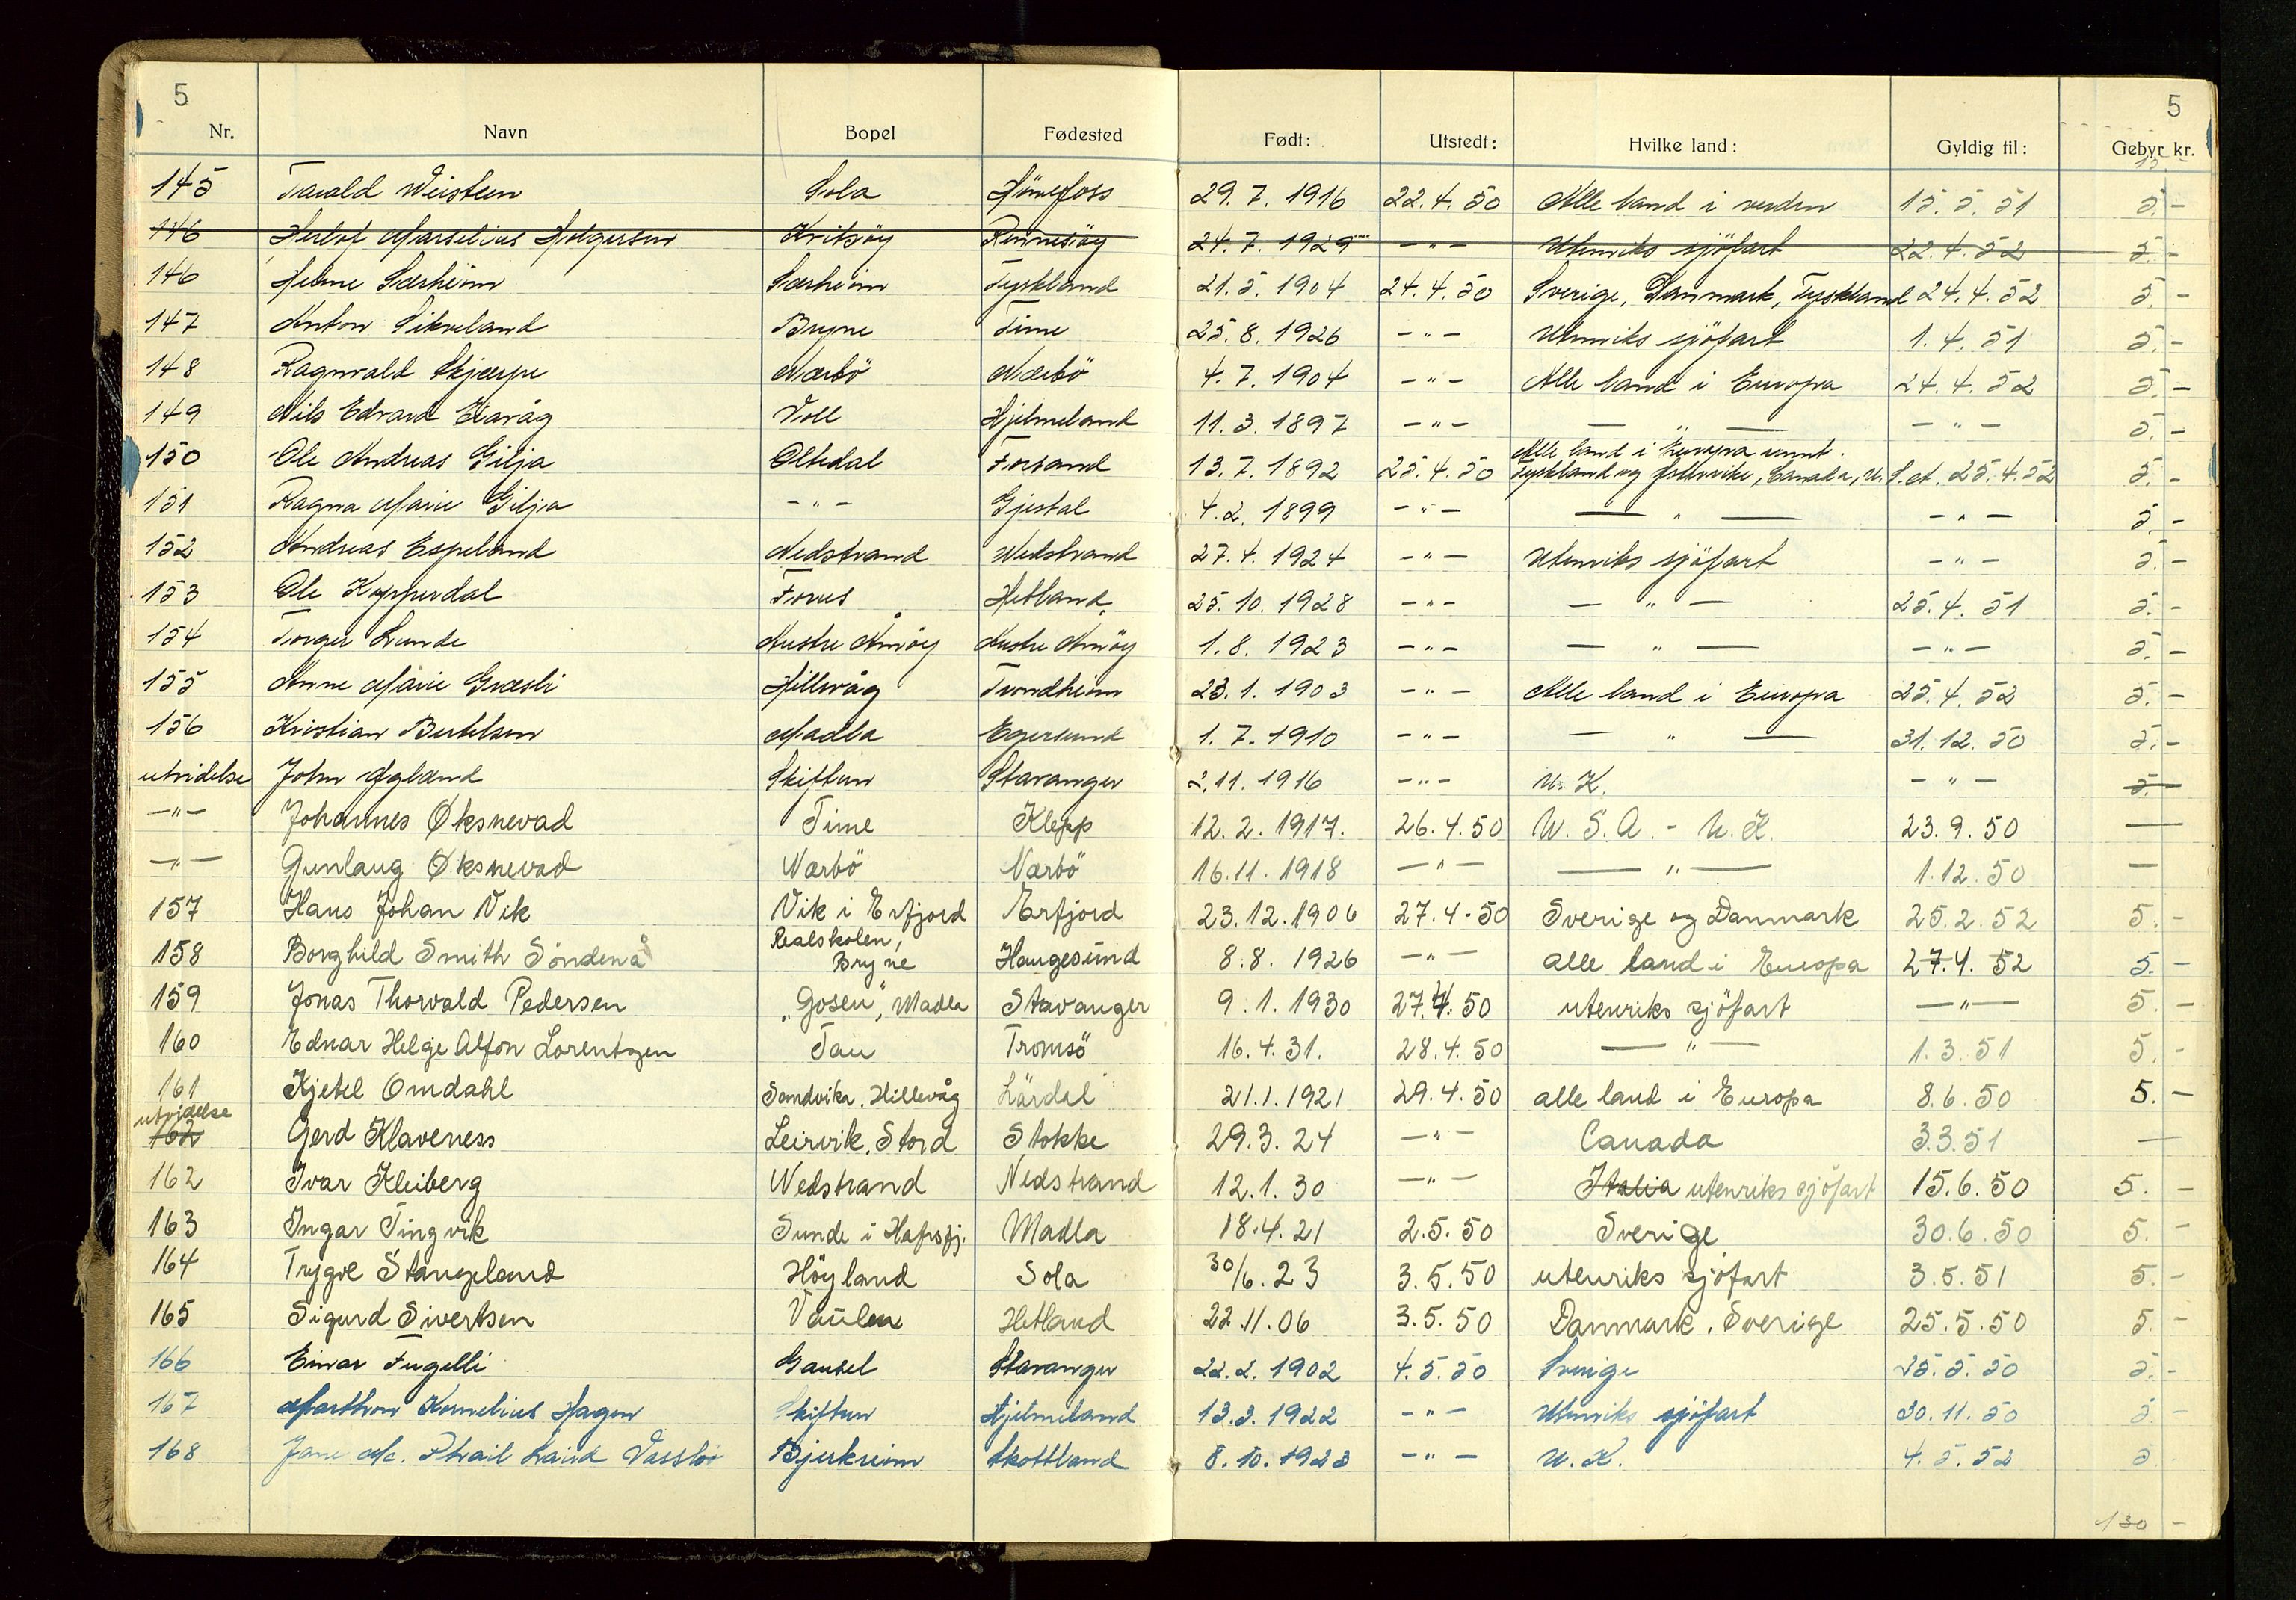 5 5
Nr. Navn Bopel Fødested Født: Utstedt: Hvilke land: Gyldig til: Gebyr kr.
145 Tarald Weisteen Sola Hönefoss 29.7.1916 22.4.50 Alle land i verden 15.5.51 5.-
146 Herlof Marselius Holgersen Kvitsöy Rennesöy 24.7.1929 -"- Utenriks sjöfart 22.4.52 5.-
146 Helene Særheim Særheim Tyskland 21.5.1904 24.4.50 Sverige, Danmark, Tyskland 24.4.52 5.-
147 Anton Sikveland Bryne Time 25.8.1926 -"- Utenriks sjöfart 1.4.51 5.-
148 Ragnvald Skjærpe Nærbö Nærbö 4.7.1904 -"- Alle land i Europa 24.4.52 5.-
149 Nils Edvard Eiavåg Voll Hjelmeland 11.3.1897 -"- -"- -"- 5.-
Alle land i Europa unnt.
150 Ole Andreas Gilja Oltedal Forsand 13.7.1892 25.4.50 Tyskland og Østerrike, Canada, U.S.A. 25.4.52 5.-
151 Ragna Marie Gilja -"- Gjestal 4.2.1899 -"- -"- -"- 5.-
152 Andreas Espeland Nedstrand Nedstrand 27.4.1924 -"- Utenriks sjöfart -"- 5.-
153 Ole Kopperdal Forus Hetland 25.10.1928 -"- -"- 25.4.51 5.-
154 Torger Lunde Austre Åmöy Austre Amöy 1.8.1923 -"- -"- -"- 5.-
155 Anne Marie Græsli Hillevåg Trondheim 23.1.1903 -"- Alle land i Europa 25.4.52 5.-
156 Kristian Bertelsen Madla Egersund 1.7.1910 -"- -"- 31.12.50 5.-
utvidelse John Øgland Skiftun Stavanger 2.11.1916 -"- U.K. -"- 5.-
-"- Johannes Øksnevad Time Klepp 12.2.1917. 26.4.50 U.S.A. - U.K. 23.9.50 —
-"- Gunlaug Øksnevad Nærbö Nærbö 16.11.1918 -"- -"- 1.12.50 —
157 Hans Johan Vik Vik i Erfjord Erfjord 23.12.1906 27.4.50 Sverige og Danmark 25.2.52 5.-
158 Borghild Smith Söndenå Realskolen, Bryne Haugesund 8.8.1926 -"- alle land i Europa 27.4.52 5.-
159 Jonas Thorvald Pedersen "Gosen", Madla Stavanger 9.1.1930 27.4.50 utenriks sjöfart -"- 5.-
160 Edvar Helge Alfon Lorentzen Tau Tromsö 16.4.31. 28.4.50 -"- 1.3.51 5.-
161 Kjetel Omdahl Sandvikv. Hillevåg Lärdal 21.1.1921 29.4.50 alle land i Europa 8.6.50 5.-
utvidelse
162 Gerd Klaveness Leirvik, Stord Stokke 29.3.24 -"- Canada 3.3.51 —
162 Ivar Kleiberg Nedstrand Nedstrand 12.1.30 -"- Italia utenriks sjöfart 15.6.50 5.-
163 Ingar Tingvik Sunde i Hafrsfj. Madla 18.4.21 2.5.50 Sverige 30.6.50 5.-
164 Trygve Stangeland Höyland Sola 30/6.23 3.5.50 utenriks sjöfart 3.5.51 5.-
165 Sigurd Sivertsen Vaulen Hetland 22.11.06 3.5.50 Danmark, Sverige 25.5.50 5.-
166 Einar Fugelli Gausel Stavanger 22.2.1902 4.5.50 Sverige 25.5.50 5.-
167 Marthon Kornelius Hagen Skiftun Hjelmeland 13.3.1922 -"- Utenriks sjöfart 30.11.50 5.-
168 Jane Mc. Phail Laird Vasslöi Bjerkreim Skottland 8.10.1923 -"- U.K. 4.5.52 5
130 -